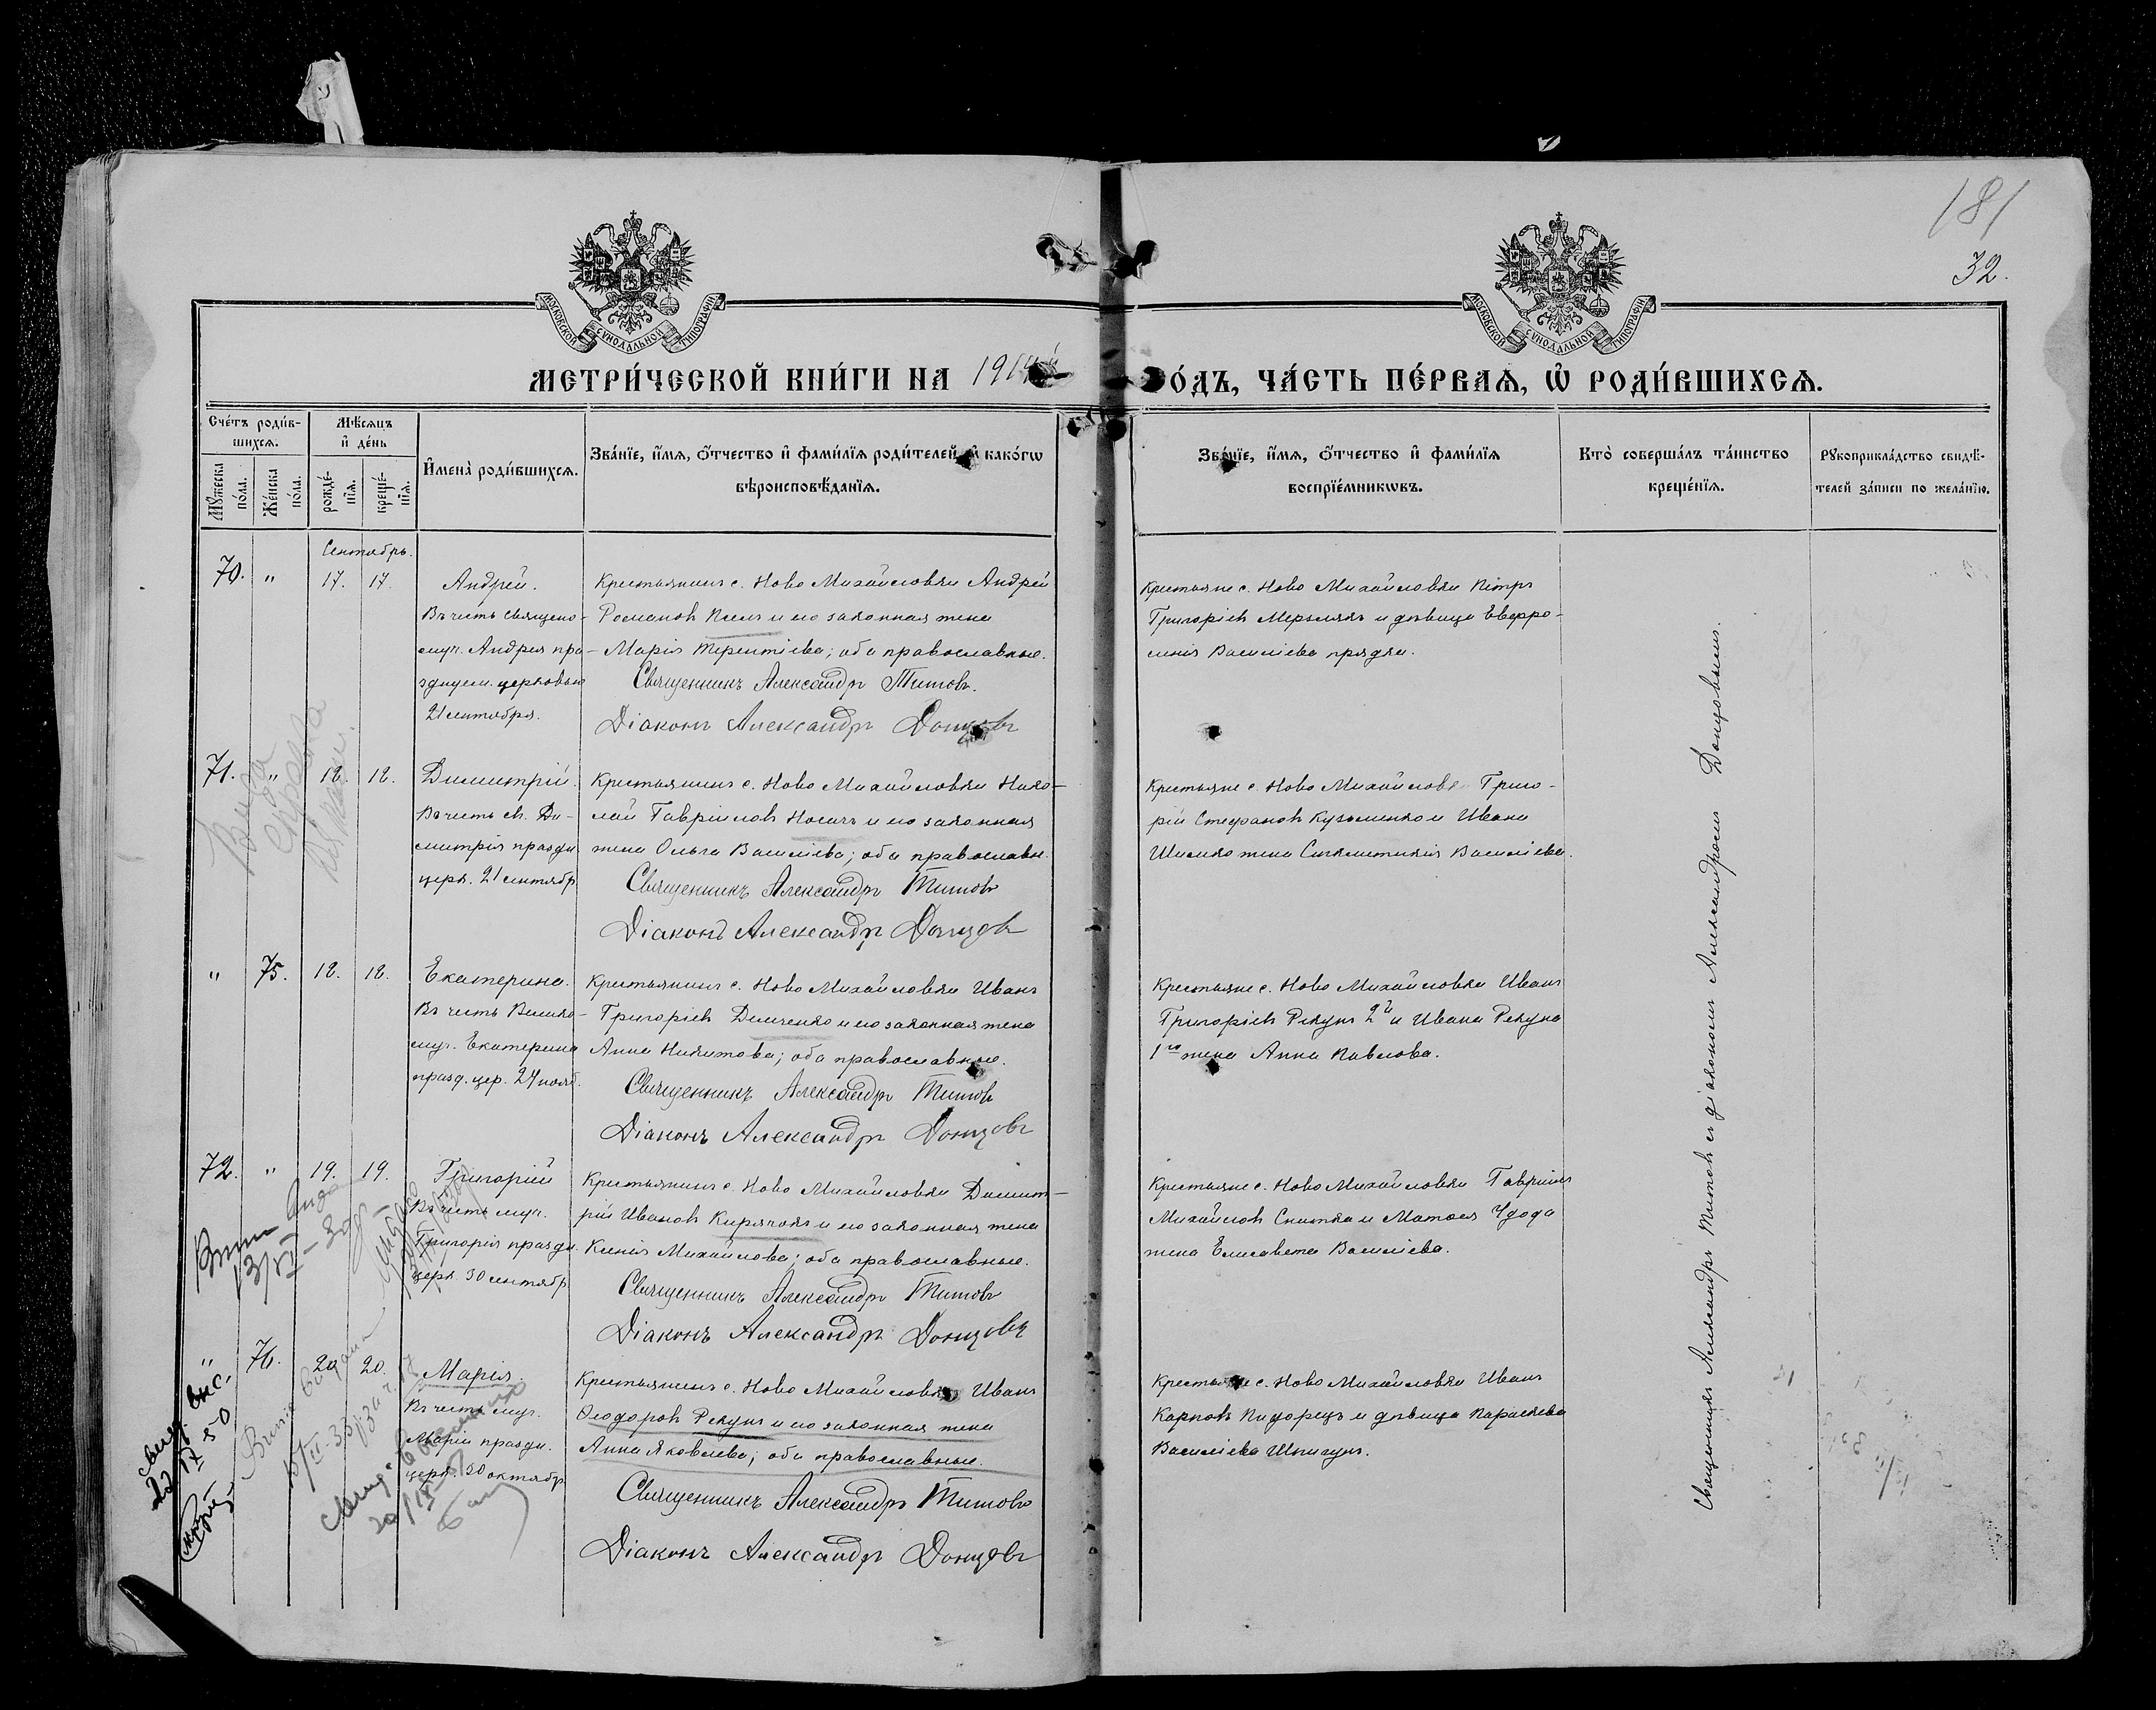 181
32.
МОСКОВСКОЙ СѴНОДАЛЬНОЙ ТИПОГРАФІИ
МОСКОВСКОЙ СѴНОДАЛЬНОЙ ТИПОГРАФІИ
МЕТРИ́ЧЕСКОЙ КНИ́ГИ НА 1914й
О́ДЪ, ЧА́СТЬ ПЕ́РВАѦ, Ѡ҆ РОДИ́ВШИХСѦ.
Сче́тъ роди́в-
шихсѧ.
Мꙋ́жеска по́ла.
Же́нска по́ла.
Мѣ́сѧцъ
и҆ де́нь
рожде́-
нїѧ.
креще́-
нїѧ.
И҆мена̀ роди́вшихсѧ.
Зва́нїе, и҆́мѧ, ѻ҆́тчество и҆ фами́лїѧ роди́телей, и҆ како́гѡ
вѣроисповѣ́данїѧ.
Зва́нїе, и҆́мѧ, ѻ҆́тчество и҆ фами́лїѧ
воспрїе́мникѡвъ.
Кто̀ соверша́лъ та́инство
креще́нїѧ.
Рꙋкоприкла́дство свидѣ́-
телей за́писи по жела́нїю.
Сентябрь.
70. " 17. 17.
Андрей.
Въ честь священо-
муч. Андрея пра-
зднуем. церковью
21 сентября.
Крестьянинъ с. Ново Михайловки Андрей
Романовъ и его законная жена
Марія Терентіева; оба православные.
Священникъ Александръ Титовъ.
Діаконъ Александръ Донцовъ
Крестьяне с. Ново Михайловки Петръ
Григоріевъ Мерзлякъ и дѣвица Евфро-
синія Василіева
71. " 18. 18.
Димитрій.
Въ честь св. Ди-
митрія праздн.
церк. 21 сентябр.
Крестьянинъ с. Ново Михайловки Нико-
лай Гавріиловъ Носачъ и его законная
жена Ольга Василіева; оба православн.
Священникъ Александръ Титовъ
Діаконъ Александръ Донцовъ
Крестьяне с. Ново Михайловки Григо-
рій Стефановъ Кузьменко и Ивана
Шишко жена Синклитикія Василіева.
" 75. 18. 18.
Екатерина.
Въ честь Велико-
муч. Екатерины
празд. цер. 24 нояб.
Крестьянинъ с. Ново Михайловки Иванъ
Григоріевъ Демченко и его законная жена
Анна Никитова; оба православные.
Священникъ Александръ Титовъ
Діаконъ Александръ Донцовъ
Крестьяне с. Ново Михайловки Иванъ
Григоріевъ Рекунъ 2й и Ивана Рекуна
1го жена Анна Павлова.
72. " 19. 19.
Григорій
Въ честь муч.
Григорія праздн.
церк. 30 сентябр.
Крестьянинъ с. Ново Михайловки Димит-
рій Ивановъ Кирячокъ и его законная жена
Ксенія Михайлова; оба православные.
Священникъ Александръ Титовъ
Діаконъ Александръ Донцовъ
Крестьяне с. Ново Михайловки Гавріилъ
Михайловъ Снитко и Матвея Удода
жена Елисавета Василіева.
" 76. 20. 20.
Марія.
Въ честь муч.
Маріи праздн.
церк. 20 октябр.
Крестьянинъ с. Ново Михайловки Иванъ
Ѳеодоровъ Рекунъ и его законная жена
Анна Яковлева; оба православные.
Священникъ Александръ Титовъ
Діаконъ Александръ Донцовъ
Крестьяне с. Ново Михайловки Иванъ
Карповъ Пидорецъ и дѣвица Параскева
Василіева Шпигунъ.
Священникъ Александръ Титовъ съ діакономъ Александромъ Донцовымъ.